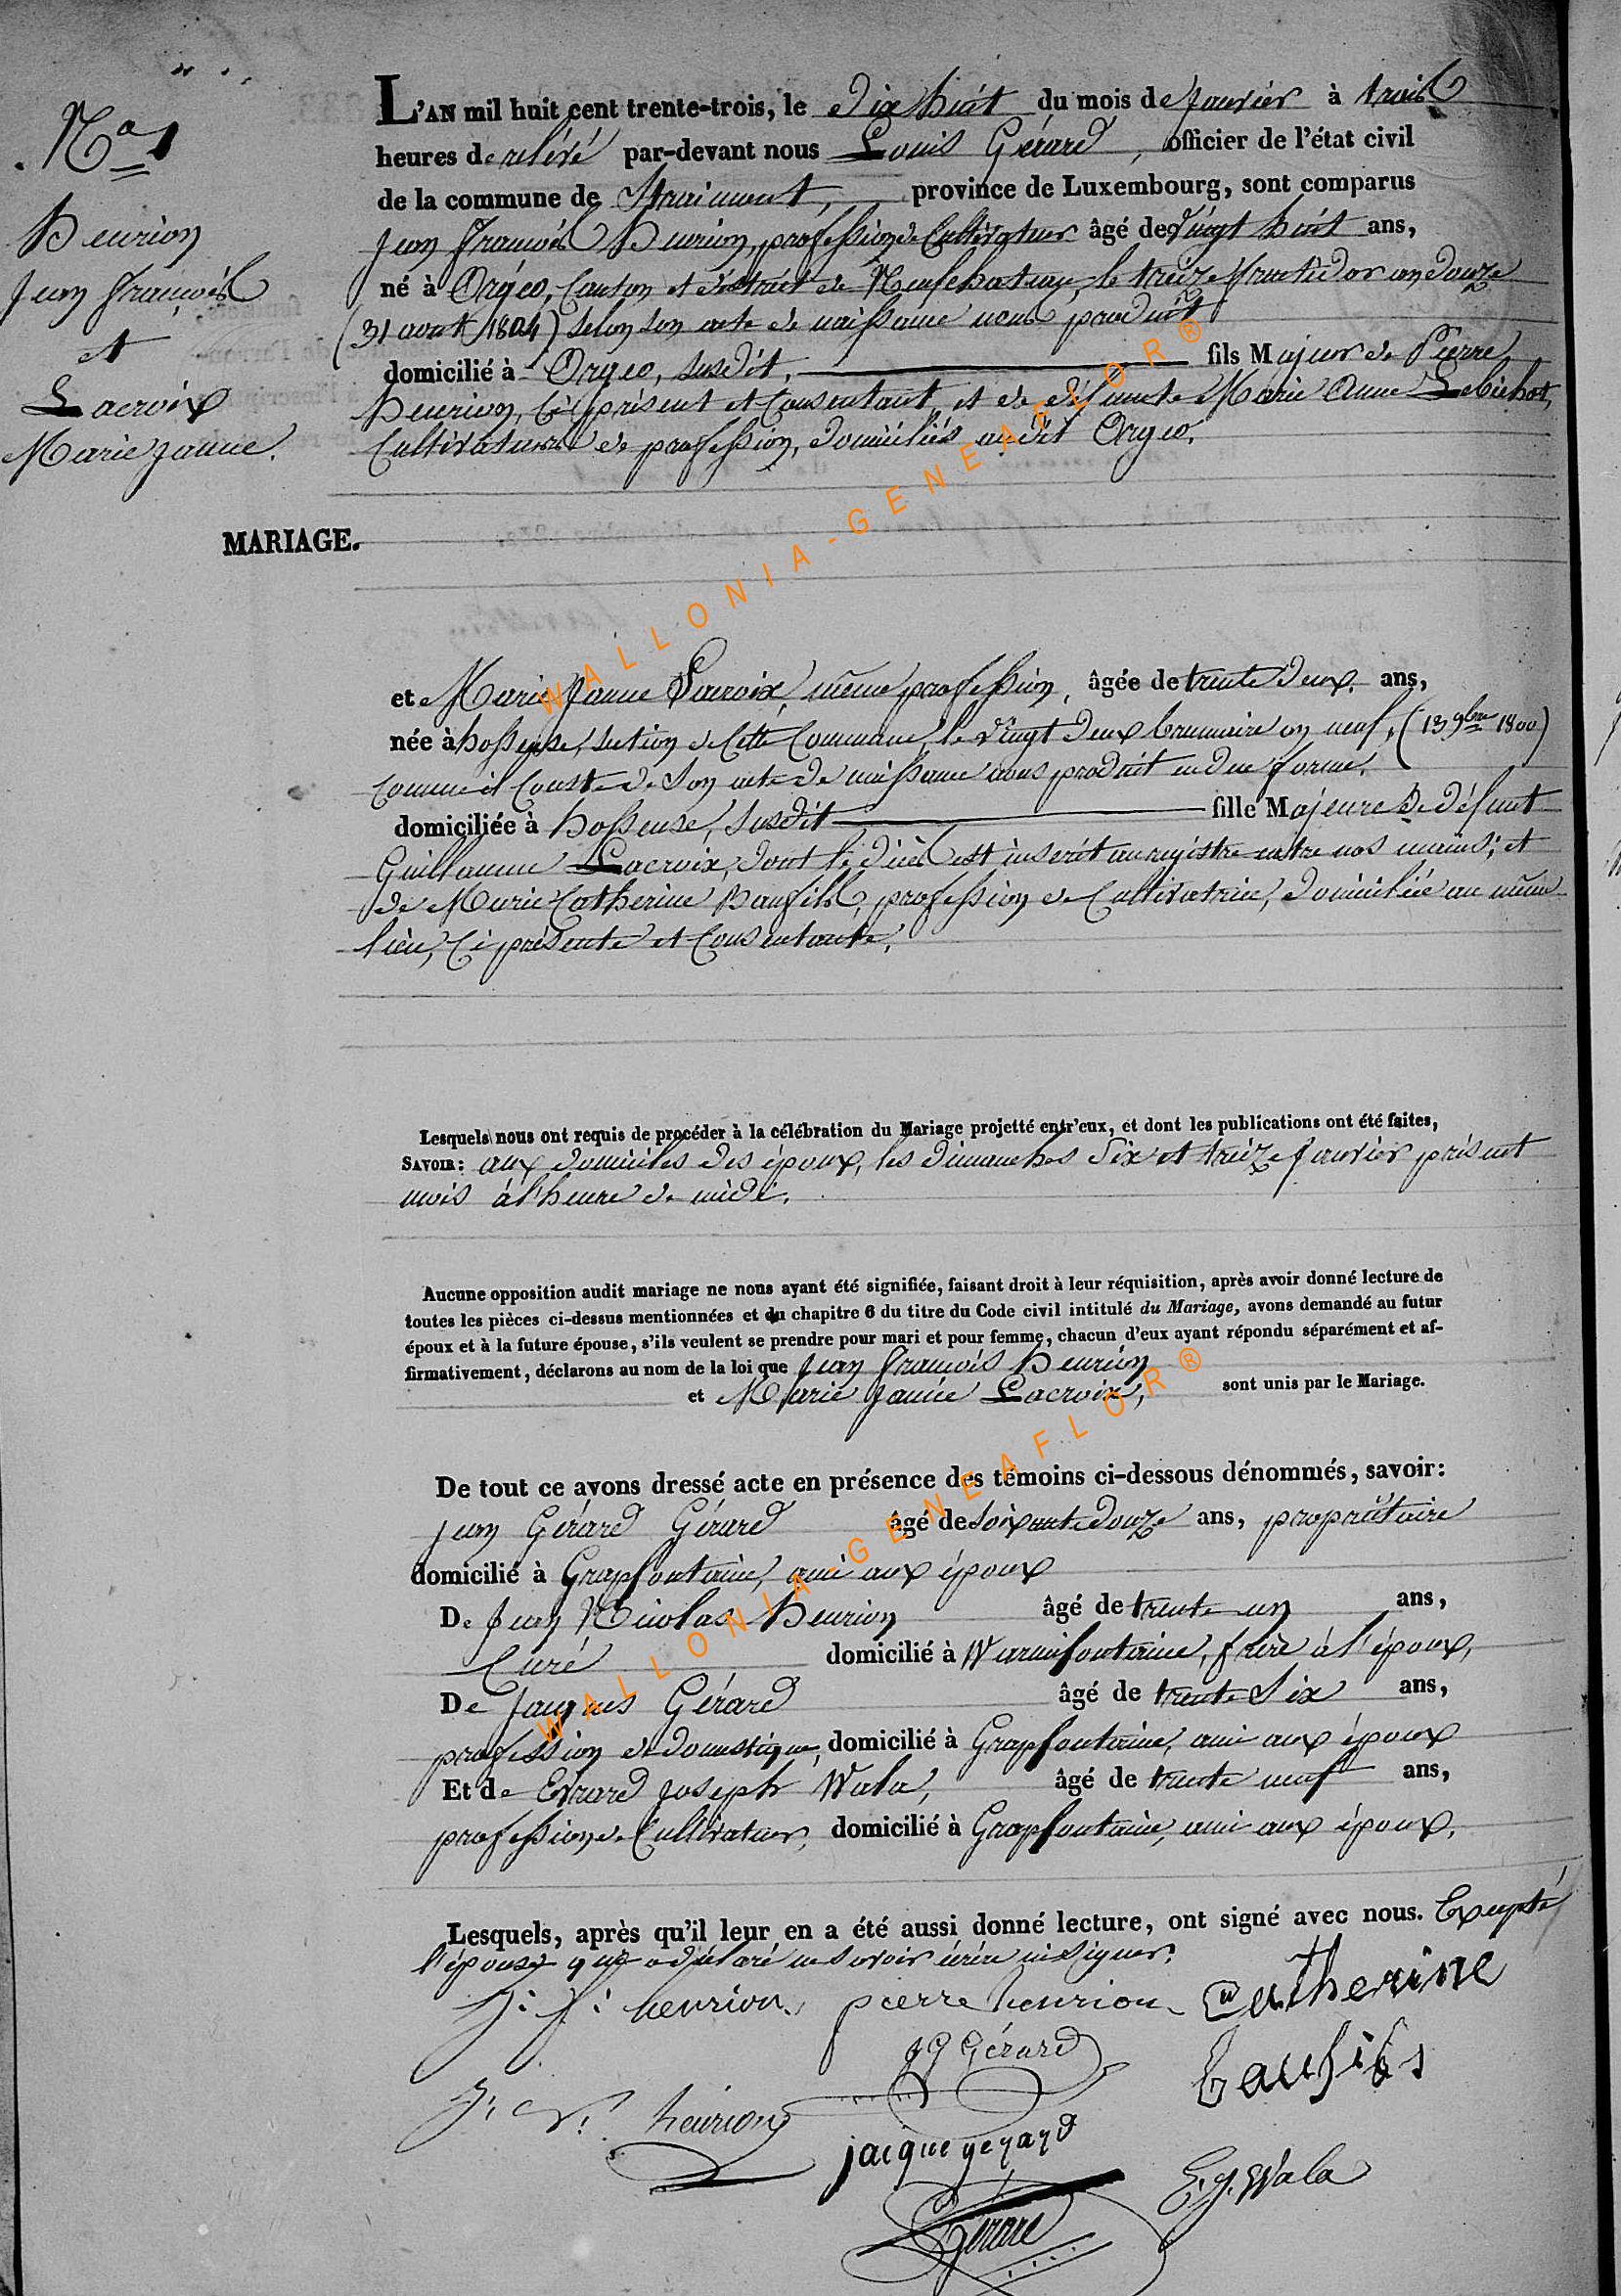 N° 1
Henrion
Jean François
et
Lacroix
Marie Jeanne.
MARIAGE.
L'AN mil huit cent trente-trois, le dix huit du mois de Janvier à trois
heures de relevé par-devant nous Louis Gérard, officier de l'état civil
de la commune de Straimont, province de Luxembourg, sont comparus
Jean François Henrion, profession de Cultivateur âgé de vingt huit ans,
né à Orgéo, Canton et district de Neufchateau, le treize fructidor an douze
(31 août 1804) selon son acte de naissance nous produit
domicilié à Orgeo, susdit, fils Majeur de Pierre
Henrion, Ci présent et Consentant, et de défunte Marie Anne Lebichot,
Cultivateurs de profession, domiciliés audit Orgeo.
et Marie Jeanne Lacroix, même profession, âgée de trente deux ans,
née à hosseuse, section de Cette Commune, le vingt deux brumaire an neuf, (13 9bre 1800)
comme il Conste de Son acte de naissance nous produit en due forme.
domiciliée à hosseuse, susdit fille Majeure de défunt
Guillaume Lacroix, dont le décès est inscrit au registre entre nos mains; et
de Marie Catherine Baufils, profession de Cultivatrice, domiciliée au même
lieu, Ci présente et Consentante.
Lesquels nous ont requis de procéder à la célébration du Mariage projetté entr'eux, et dont les publications ont été faites,
SAVOIR: aux domiciles des époux, les dimanches Six et treize Janvier présent
mois à l'heure de midi.
Aucune opposition audit mariage ne nous ayant été signifiée, faisant droit à leur réquisition, après avoir donné lecture de
toutes les pièces ci-dessus mentionnées et du chapitre 6 du titre du Code civil intitulé du Mariage, avons demandé au futur
époux et à la future épouse, s'ils veulent se prendre pour mari et pour femme, chacun d'eux ayant répondu séparément et af-
firmativement, déclarons au nom de la loi que Jean François Henrion
et Marie Jeanne Lacroix, sont unis par le Mariage.
De tout ce avons dressé acte en présence des témoins ci-dessous dénommés, savoir:
Jean Gérard Gérard âgé de soixante douze ans, propriétaire
domicilié à Grapfontaine, ami aux époux
De Jean Nicolas Henrion âgé de trente un ans,
Curé domicilié à Warmifontaine, frère à l'époux,
De Jacques Gérard âgé de trente Six ans,
profession de domestique, domicilié à Grapfontaine, ami aux époux
Et de Evrard Joseph Wala, âgé de trente neuf ans,
profession de Cultivateur, domicilié à Grapfontaine, ami aux époux.
Lesquels, après qu'il leur en a été aussi donné lecture, ont signé avec nous. Excepté
l'épouse qui a déclaré ne savoir écrire ni signer.
J: f: henrion pierre henrion Catherine
J G Gérard Baufils
J: N: henrion
jacque gerard
E. J. Wala
Gérard
WALLONIA-GENEAFLOR®
WALLONIA-GENEAFLOR®